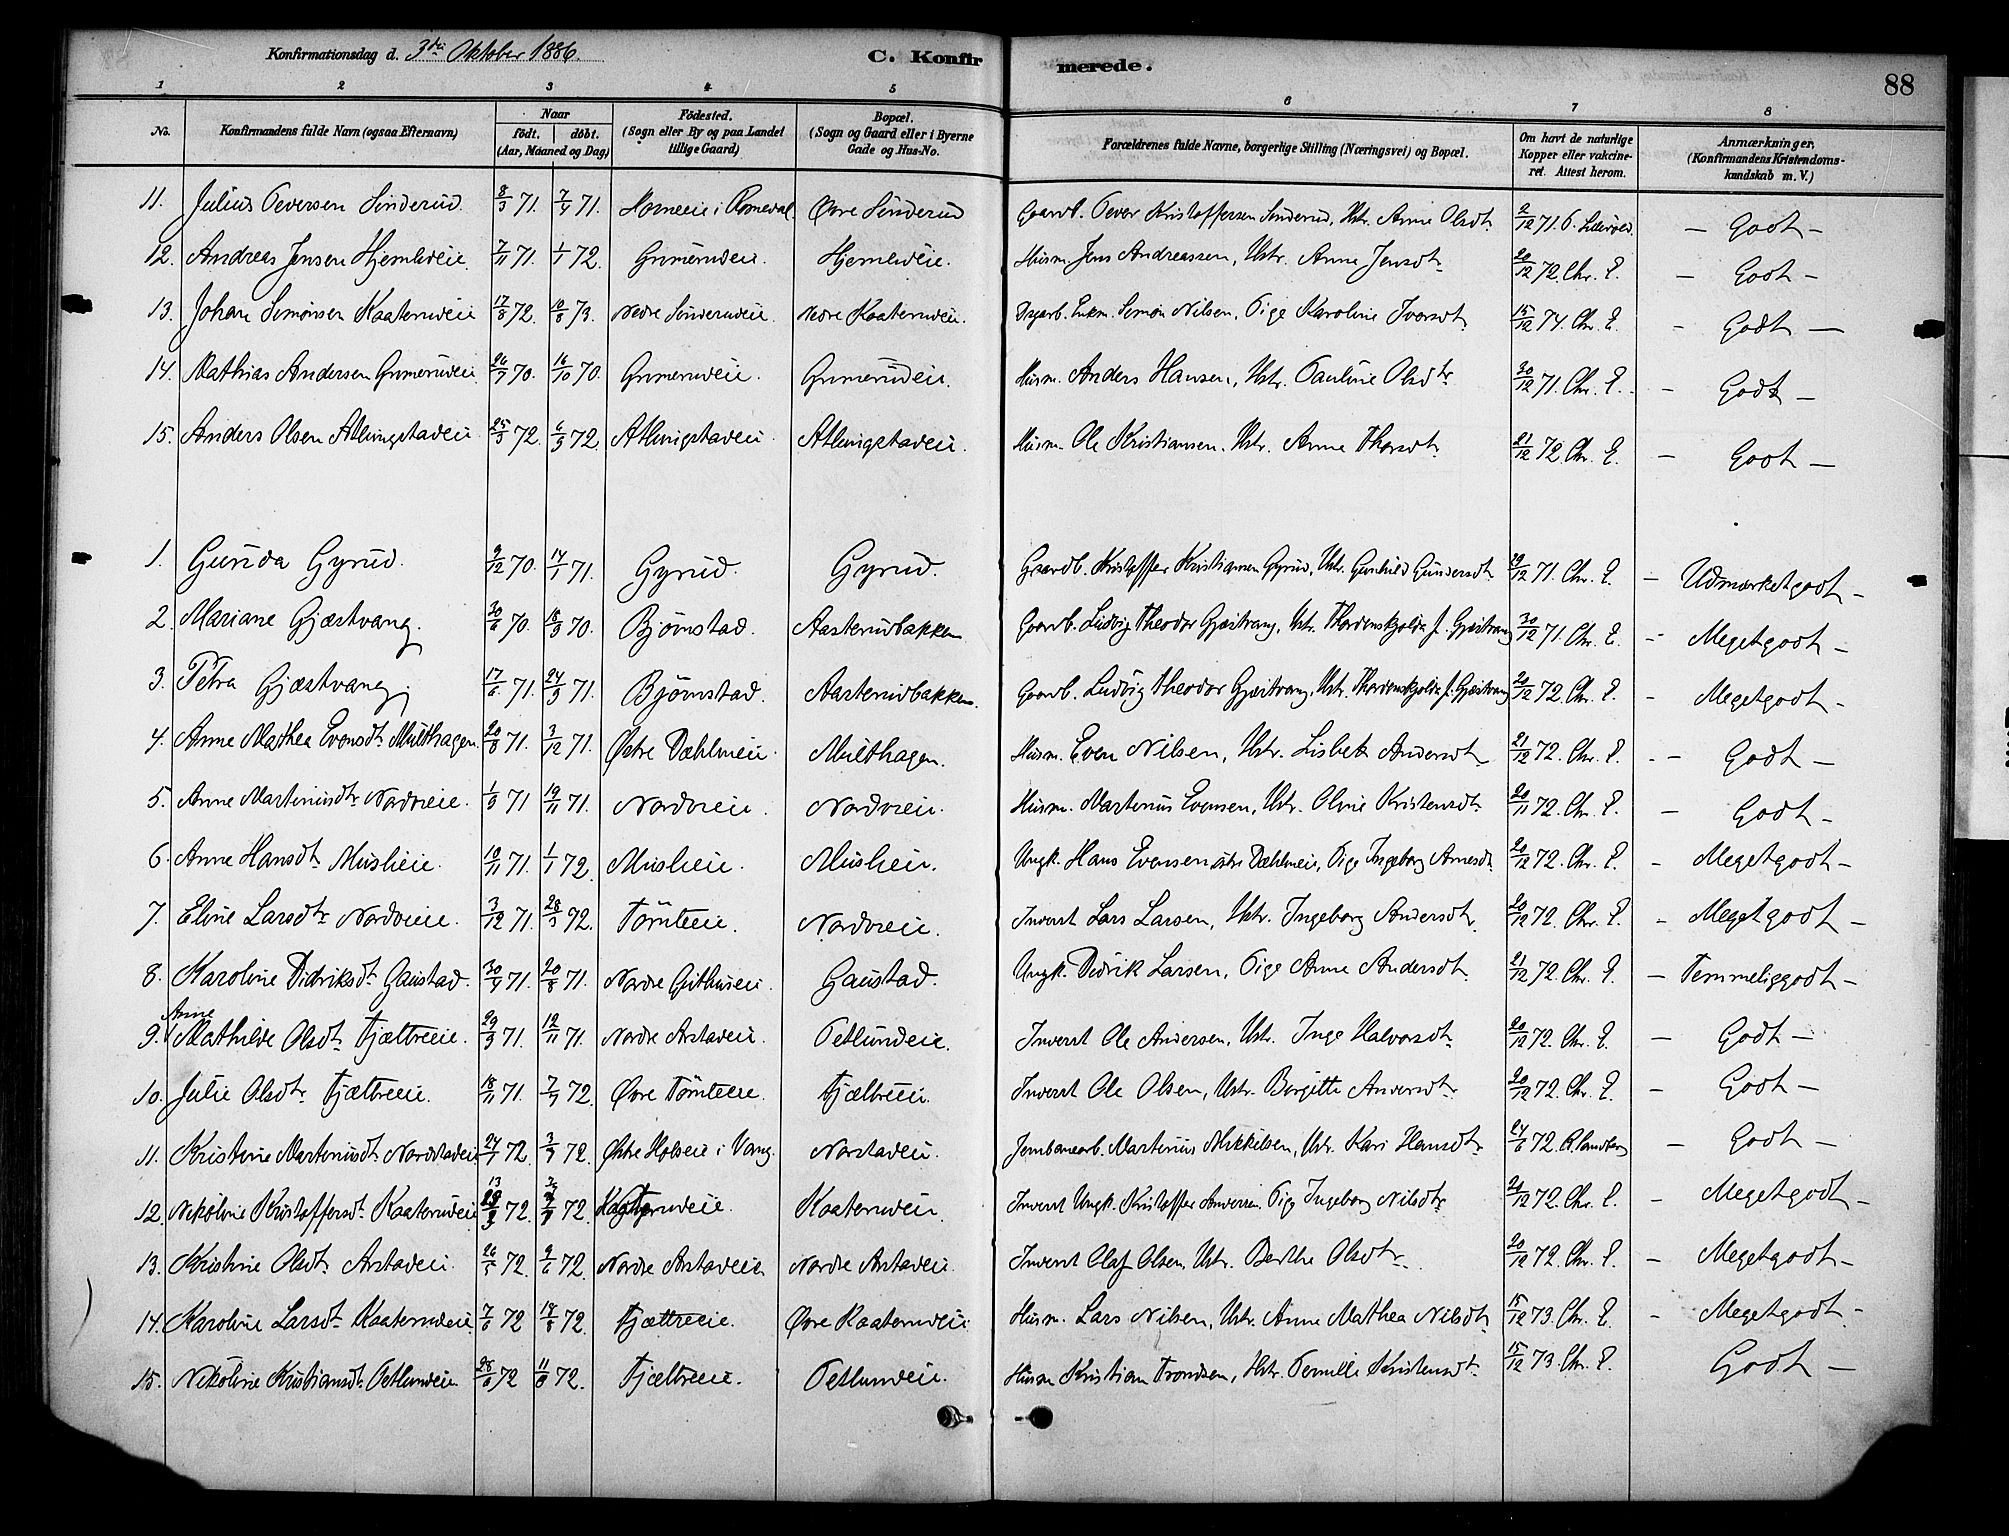 Konfirmationsdag d. 3die Oktober 1886.
C. Konfirmerede.
88
1 2 3 4 5 6 7 8
No. Konfirmandens fulde Navn (ogsaa Efternavn) Naar født. døbt. (Aar, Maaned og Dag) Fødested. (Sogn eller By og paa Landet tillige Gaard) Bopæl. (Sogn og Gaard eller i Byerne Gade og Hus-No. Forældrenes fulde Navne, borgerlige Stilling (Næringsvei) og Bopæl. Om havt de naturlige Kopper eller vakcineret. Attest herom. Anmærkninger, (Konfirmandens Kristendomskundskab m. V.)
11. Julius Pedersen Sinderud 8/3 71. 7/4 71. i Romedal Øvre Sinderud Gaardb. Peder Kristoffersen Sinderud, Hstr. Anne Olsdtr. 2/12 71. — Godt —
12. Andreas Jensen Hjemliveie. 7/11 71. 1/1 72. Grimerudeie. Hjemliveie. Husm. Jens Andreassen, Hstr. Anne Jensdtr. 20/12 72. Chr. E. — Godt —
13. Johan Simonsen Kaaterudeie 17/8 72. 10/8 73. Nedre Sinderudeie. Nedre Kaaterudeie. Enkm. Simon Nilsen, Pige Karoline Iversdtr. 15/12 74. Chr. E. — Godt —
14. Mathias Andersen Grimerudeie. 26/7 70. 16/10 70. Grimerudeie. Grimerudeie. Husm. Anders Hansen, Hstr. Pauline Olsdtr. 30/12 71. Chr. E. — Godt —
15. Anders Olsen Atlungstadeie 25/3 72. 6/3 72. Atlungstadeie. Atlungstadeie. Husm. Ole Kristiansen, Hstr. Anne Thorsdtr. 21/12 72. Chr. E. — Godt —
1. Gurida Gyrud. 9/12 70. 14/1 71. Gyrud. Gyrud. Gaardb. Kristoffer Kristiansen Gyrud, Hstr. Gunhild Gundersdtr. 20/12 71. Chr. E. — Udmærketgodt —
2. Mariane Gjæstvang. 30/6 70. 18/9 70. Bjørnstad. Aasterudbakken Gaardb. Ludvig Theodor Gjæstvang, Hstr. Thordenskjolda J. Gjæstvang 30/12 71. Chr. E. — Megetgodt —
3. Petra Gjæstvang. 17/6 71. 24/9 71. Bjørnstad. Aasterudbakken. Gaardb. Ludvig Theodor Gjæstvang, Hstr. Thordenskjolda J. Gjæstvang 20/12 72. Chr. E. — Megetgodt —
4. Anne Mathea Evensdtr. Multhagen. 20/8 71. 3/12 71. Østre Dæhlineie. Multhagen. Husm. Even Nilsen, Hstr. Lisbet Andersdtr. 21/12 72. Chr. E. — Godt —
5. Anne Martiniusdtr. Nordvieie. 1/9 71 19/11 71. Nordvieie. Nordvieie. Husm. Martinius Evensen, Hstr. Oline Kristensdtr. 20/11 72. Chr. E. — Godt —
6. Anne Hansdtr. Muslieie. 10/11 71. 1/1 72. Muslieie. Muslieie. Ungk. Hans Evensen østre Dæhlineie, Pige Ingeborg Arnesdtr. 20/12 72. Chr. E. — Megetgodt —
7. Eline Larsdtr. Nordvieie. 3/12 71. 28/3 72. Tømteeie. Nordvieie. Inderst Lars Larsen, Hstr. Ingeborg Andersdtr. 20/12 72. Chr. E. — Megetgodt —
8. Karoline Didriksdtr. Gaustad. 30/4 71. 20/8 71. Nordre Guthuseie. Gaustad. Ungk. Didrik Larsen, Pige Anne Andersdtr. 21/12 72. Chr. E. — Temmeliggodt —
9. Anne Mathilde Olsdtr. Fjæltreeie. 29/9 71. 12/11 71. Nordre Arstadeie. Petlundeie. Inderst Ole Andersen, Hstr. Inge Halvorsdtr. 20/12 72. Chr. E. — Godt —
10. Julie Olsdtr. Fjæltreeie. 18/11 71. 7/4 72. Øvre Tømteeie. Fjæltreeie. Inderst Ole Olsen, Hstr. Birgitte Andersdtr. 20/12 72. Chr. E. — Godt —
11. Kristine Martiniusdtr. Nordstadeie 24/1 72. 3/3 72. Østre Holseie i Vang. Norstadeie. Jernbanearb. Martinius Mikkelsen, Hstr. Kari Hansdtr. 24/6 72. — Godt —
12. Nikoline Kristoffersdtr. Kaaterudeie 72. 72. Kaaterudeie. Kaaterudeie. Inderst Ungk. Kristoffer Andersen, Pige Ingeborg Nilsdtr. 20/12 72. Chr. E. — Megetgodt —
13. Kristine Olsdtr. Arstadeie. 26/5 72. 9/6 72. Nordre Arstadeie. Nordre Arstadeie. Inderst Olaf Olsen, Hstr. Berthe Olsdtr. 20/12 72. Chr. E. — Megetgodt —
14. Karoline Larsdtr. Kaaterudeie. 7/6 72 18/8 72. Fjæltreeie. Øvre Kaaterudeie. Husm. Lars Nilsen, Hstr. Anne Mathea Nilsdtr. 15/12 73. Chr. E. — Megetgodt —
15. Nikoline Kristiansdtr. Petlundeie. 28/6 72 11/8 72. Fjæltreeie. Petlundeie. Husm. Kristian Trondsen, Hstr. Pernille Kristensdtr. 15/12 73. Chr. E. Godt —